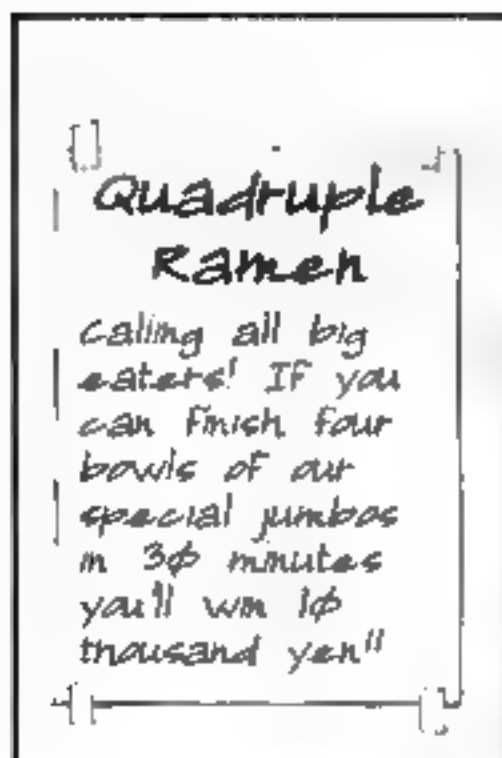 Quadruple
Ramen
Calling all big
eaters! If you
can finish four
bowls of our
special jumbos
in 30 minutes
you'll win 10
thousand yen"